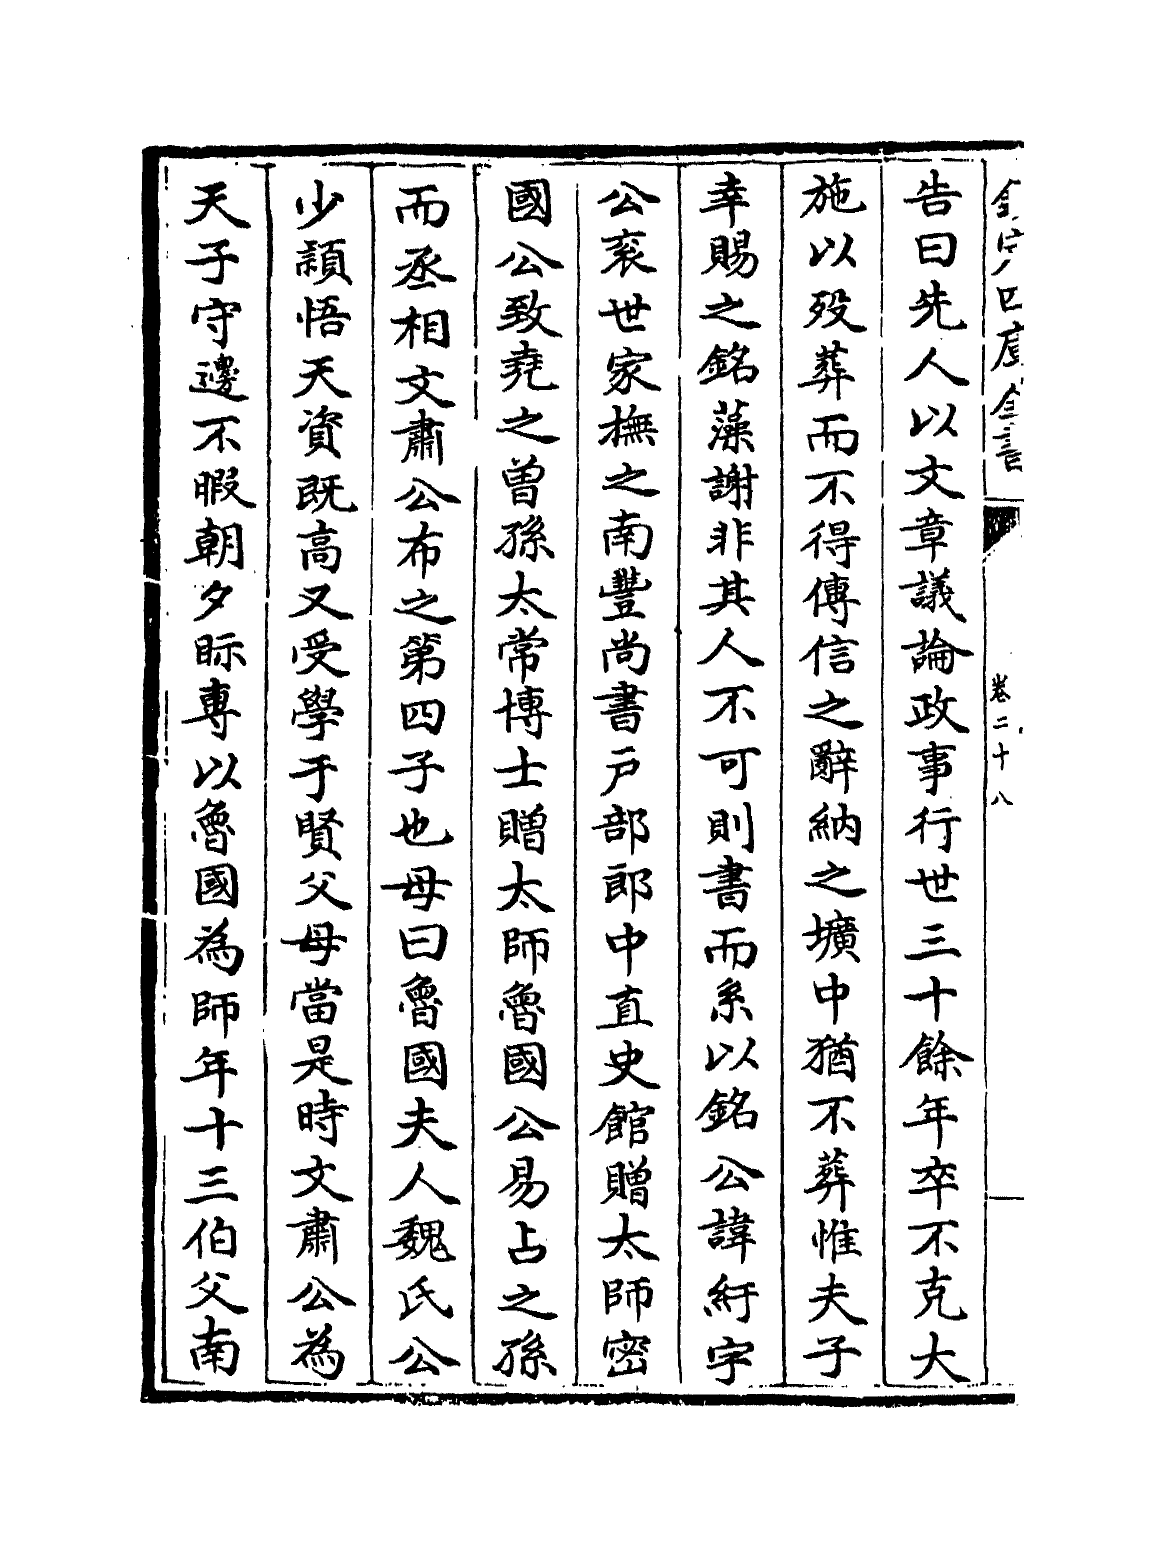 欽定四庫全書
卷二十八
告曰先人以文章議論政事行世三十餘年卒不克大
施以歿葬而不得傳信之辭納之壙中猶不葬惟夫子
幸賜之銘藻謝非其人不可則書而系以銘公諱紆字
公衮世家撫之南豐尚書戸部郎中直史館贈太師密
國公致堯之曽孫太常博士贈太師魯國公易占之孫
而丞相文肅公布之第四子也母曰魯國夫人魏氏公
少頴悟天資既高又受學于賢父母當是時文肅公為
天子守邊不暇朝夕眎專以魯國為師年十三伯父南